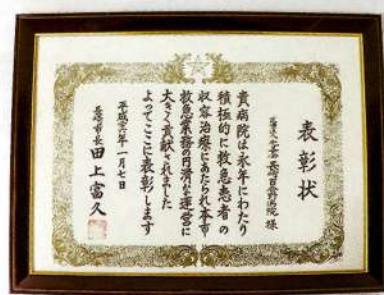 表彰状
長崎百合野病院 様
貴病院は永年にわたり
積極的に救急患者の
収容治療にあたられ本市
救急業務の円滑な運営に
大きく貢献されました
よってここに表彰します
平成二六年一月七日
長崎市長 田上富久